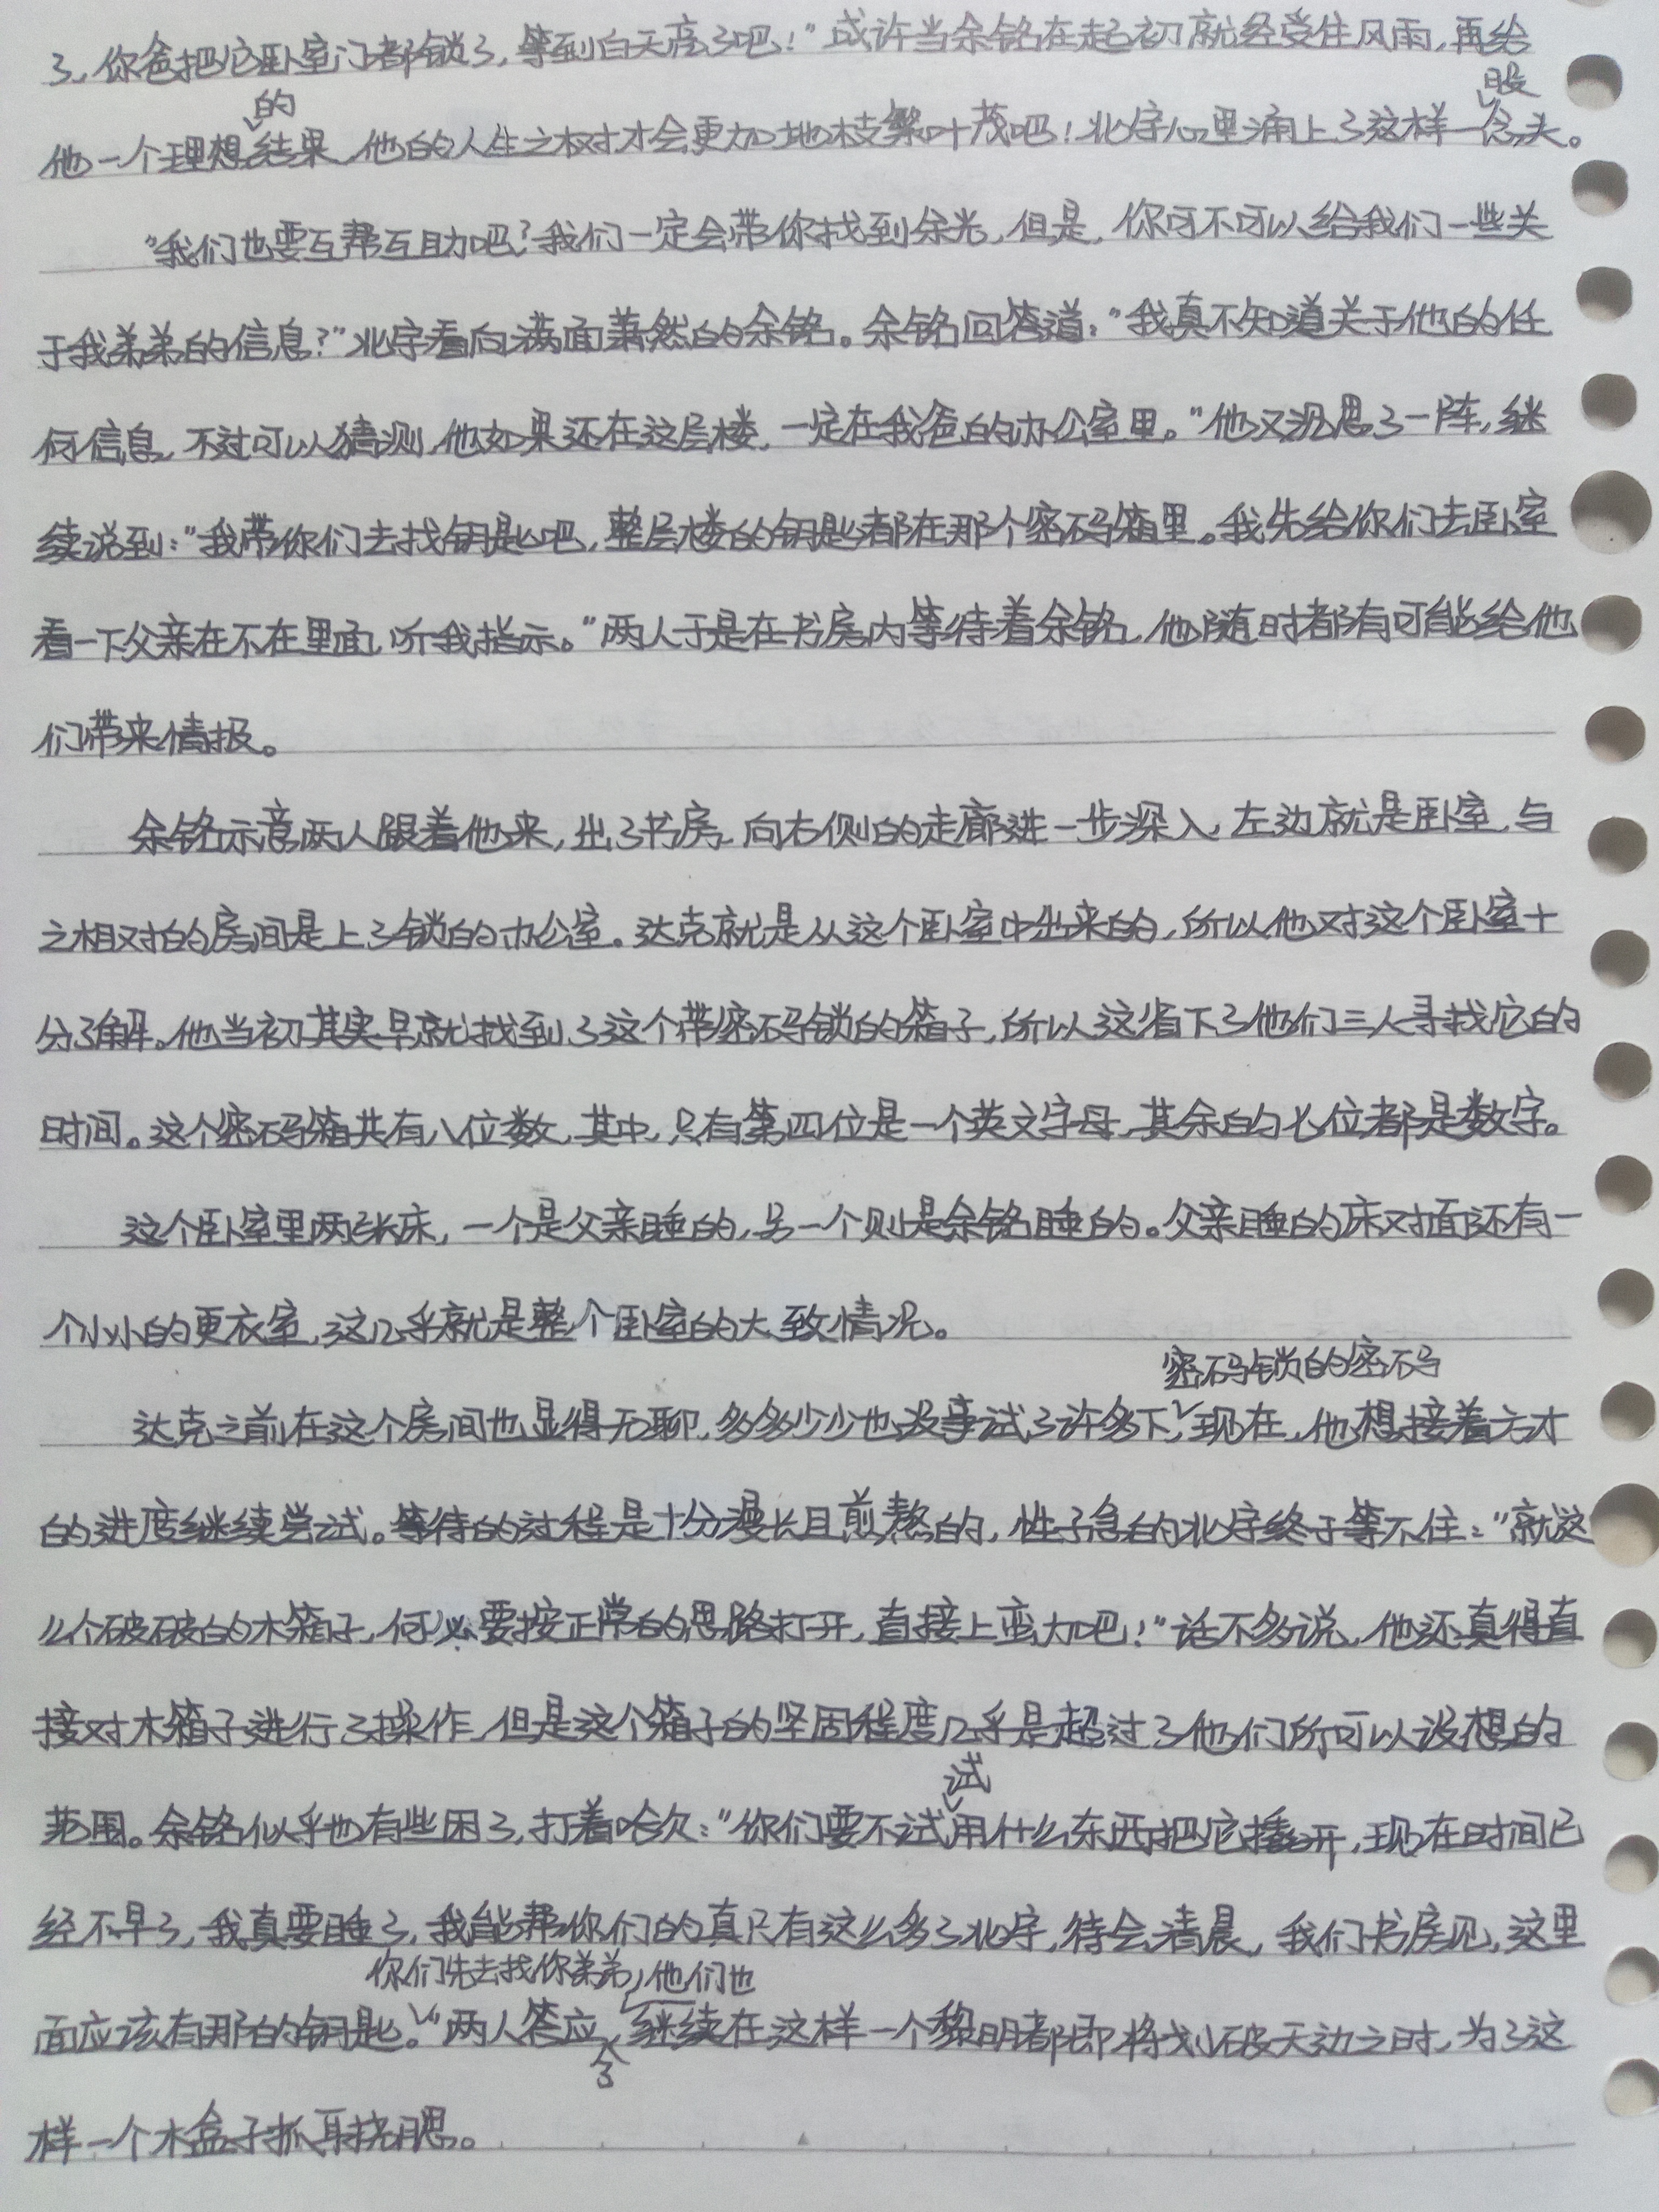 了，你爸把它卧室门都锁了，等到白天亮了吧！”或许当余铭在起初就经受住风雨，再给
的
股
他一个理想结果，他的人生之树才会更加地枝繁叶茂吧！北宇心里涌上了这样一念头。
“我们也要互帮互助吧？我们一定会带你找到余光，但是，你可不可以给我们一些关
于我弟弟的信息？”北宇看向满面萧然的余铭。余铭回答道：“我真不知道关于他的任
何信息，不过可以猜测，他如果还在这层楼，一定在我爸的办公室里。”他又沉思了一阵，继
续说到：“我带你们去找钥匙吧，整层楼的钥匙都在那个密码箱里。我先给你们去卧室
看一下父亲在不在里面，听我指示。”两人于是在书房内等待着余铭，他随时都有可能给他
们带来情报。
余铭示意两人跟着他来，出了书房，向右侧的走廊进一步深入，左边就是卧室，与
之相对的房间是上了锁的办公室。达克就是从这个卧室中出来的，所以他对这个卧室十
分了解。他当初其实早就找到了这个带密码锁的箱子，所以这省下了他们三人寻找它的
时间。这个密码箱共有八位数，其中，只有第四位是一个英文字母，其余的七位都是数字。
这个卧室里两张床，一个是父亲睡的，另一个则是余铭睡的。父亲睡的床对面还有一
个小小的更衣室，这几乎就是整个卧室的大致情况。
密码锁的密码
达克之前在这个房间也显得无聊，多多少少也没事试了许多下，现在，他想接着方才
的进度继续尝试。等待的过程是十分漫长且煎熬的，性子急的北宇终于等不住：“就这
么个破破的木箱子，何必要按正常的思路打开，直接上蛮力吧！”话不多说，他还真得直
接对木箱子进行了操作，但是这个箱子的坚固程度几乎是超过了他们所可以设想的
试
范围。余铭似乎也有些困了，打着哈欠：“你们要不试用什么东西把它撬开，现在时间已
经不早了，我真要睡了，我能帮你们的真只有这么多了北宇，待会清晨，我们书房见，这里
你们先去找你弟弟，他们也
面应该有那的钥匙。”两人答应，继续在这样一个黎明都即将划破天边之时，为了这
含
样一个木盒子抓耳挠腮。